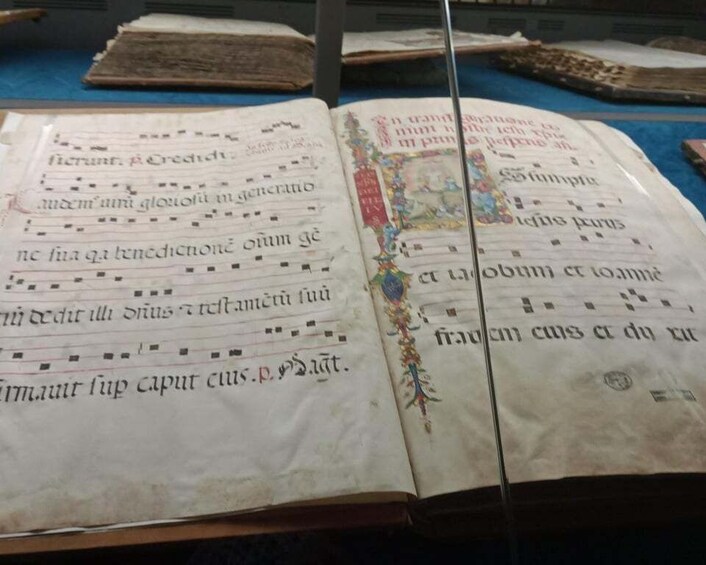 sierunt. p. Credidi.
Laudem̃ virũ gloriosũ in generatiõ
ne sua q̃a benedictionẽ oĩum gẽ
tiũ dedit illi dñus ⁊ testamẽtũ suũ
firmauit sup̱ caput eius. p. Mag̃t.
In transfiguratione do
mini nostri iesu
in primis vesperis añ.
Assumpsit
iesus petrus
et iacobum et ioannẽ
fratrem eius et du xit